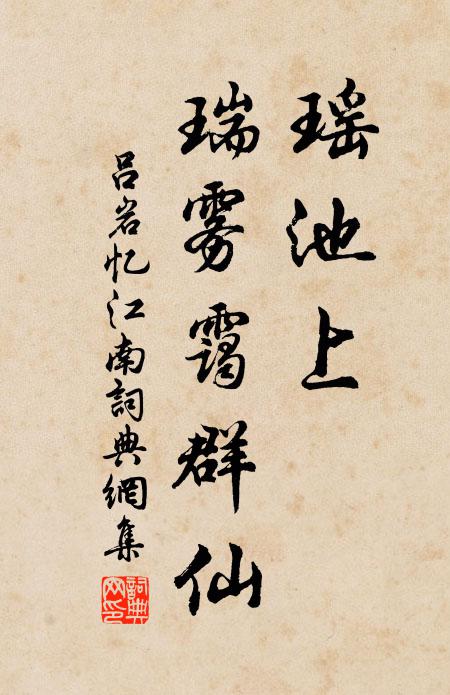 瑶池上
瑞雾霭群仙
吕岩忆江南詞典網集
詞典网印